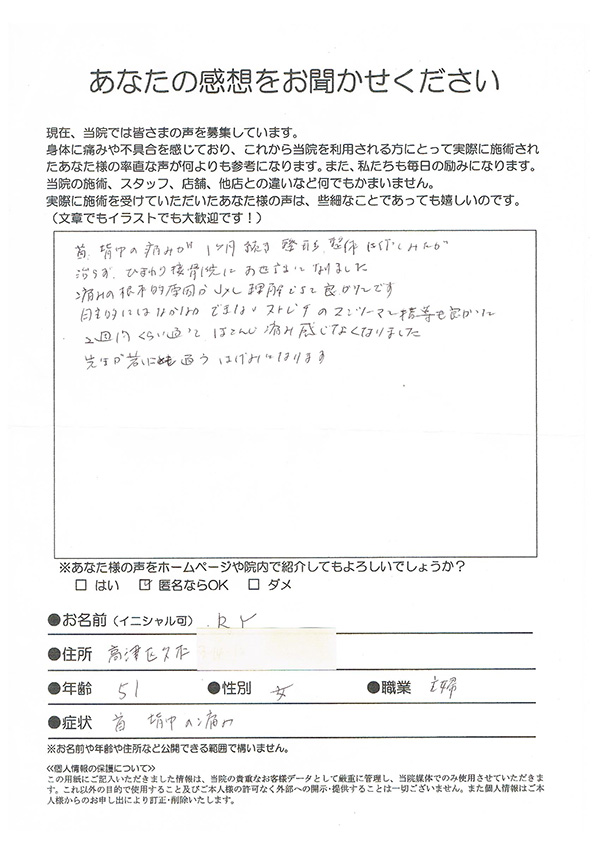 あなたの感想をお聞かせください
現在、当院では皆さまの声を募集しています。
身体に痛みや不具合を感じており、これから当院を利用される方にとって実際に施術され
たあなた様の率直な声が何よりも参考になります。また、私たちも毎日の励みになります。
当院の施術、スタッフ、店舗、他店との違いなど何でもかまいません。
実際に施術を受けていただいたあなた様の声は、些細なことであっても嬉しいのです。
（文章でもイラストでも大歓迎です！）
首、背中の痛みが 1ヶ月続き 整形、整体 に行くみたが
治らず、ひまわり接骨院に お世話になりました
痛みの根本的原因が少し理解できて良かったです
自主的にはなかなか できない ストレッチの マンツーマン指導も良かった
2週間くらい通って ほとんど 痛み感じなくなりました
先生が若い 通う はげみになります
※あなた様の声をホームページや院内で紹介してもよろしいでしょうか？
□ はい ☑ 匿名ならOK □ ダメ
●お名前（イニシャル可） R Y
●住所 高津区久本
●年齢 51 ●性別 女 ●職業 主婦
●症状 首 背中の痛み
※お名前や年齢や住所など公開できる範囲で構いません。
≪個人情報の保護について≫
この用紙にご記入いただきました情報は、当院の貴重なお客様データとして厳重に管理し、当院媒体でのみ使用させていただきま
す。これ以外の目的で使用すること及びご本人様の許可なく外部への開示・提供することは一切ございません。また個人情報はご本
人様からのお申し出により訂正・削除いたします。